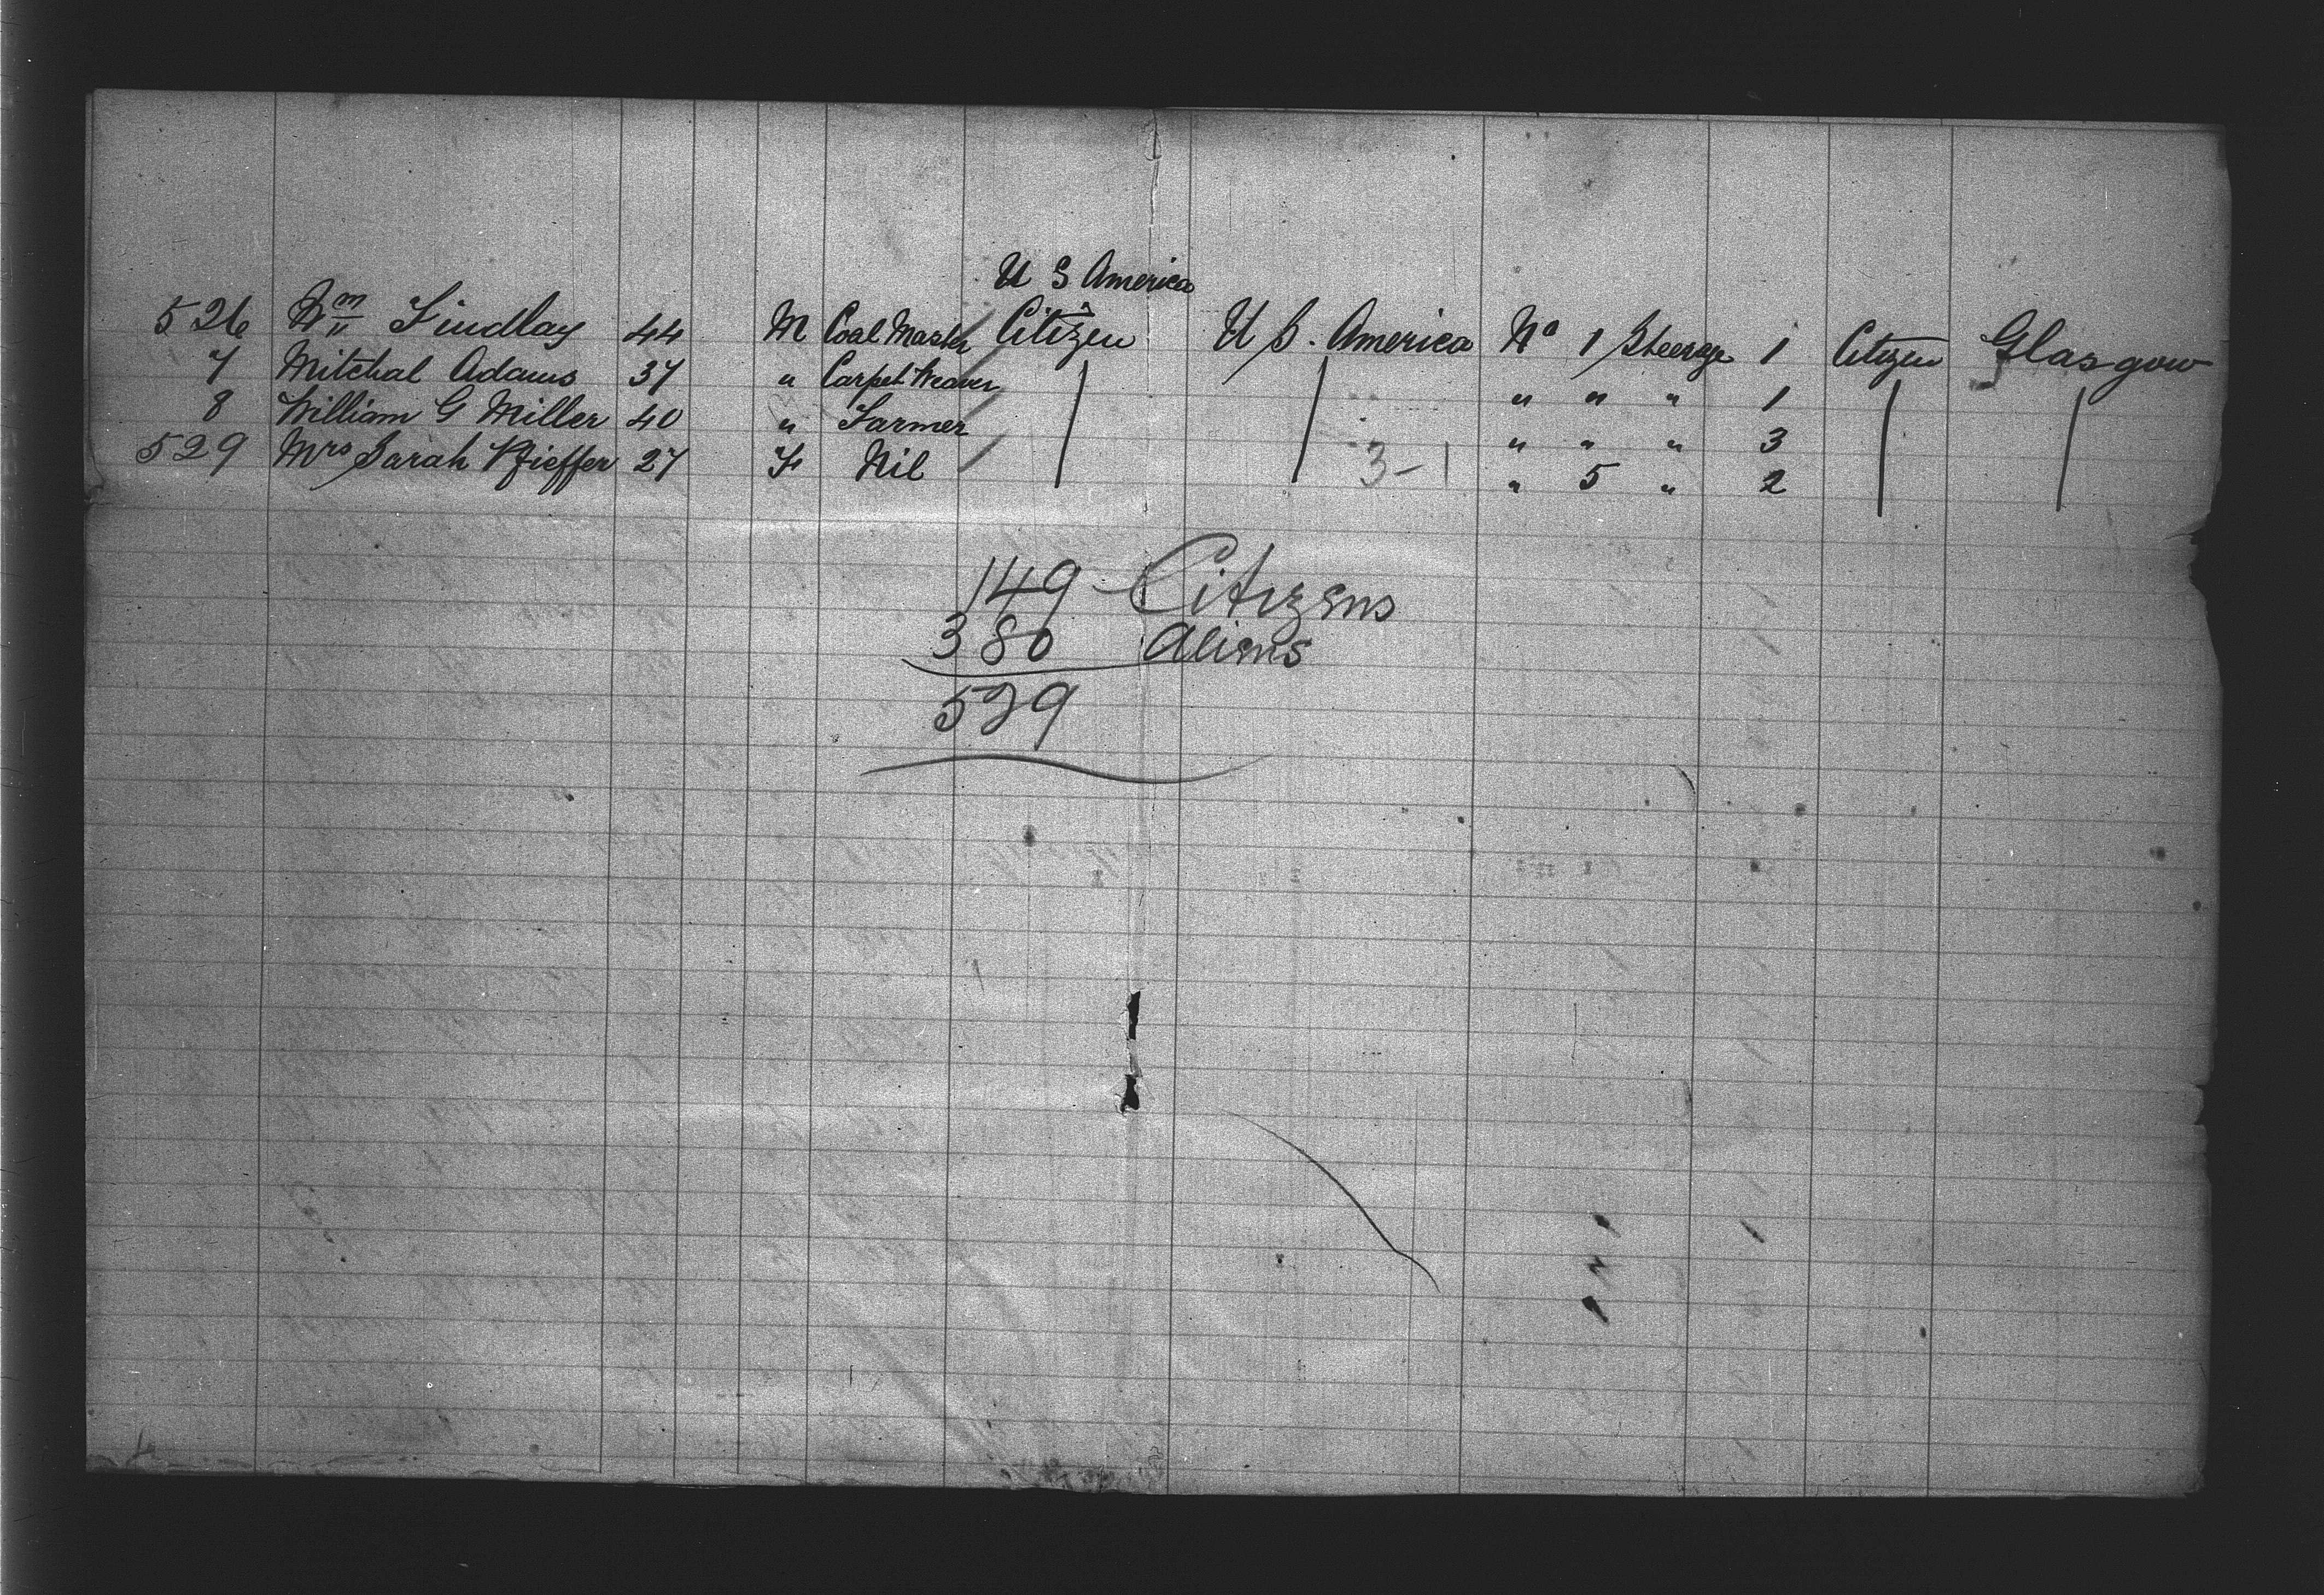 U S America
526 Wm Findlay 44 M Coal Master Citizen U S. America No 1 Steerage 1 Citizen Glasgow
7 Mitchal Adams 37 " Carpet Weaver " " " 1
8 William G Miller 40 " Farmer " " " 3
529 Mrs Sarah Pfieffer 27 F Nil 3-1 " 5 " 2
149 - Citizens
380 Aliens
529